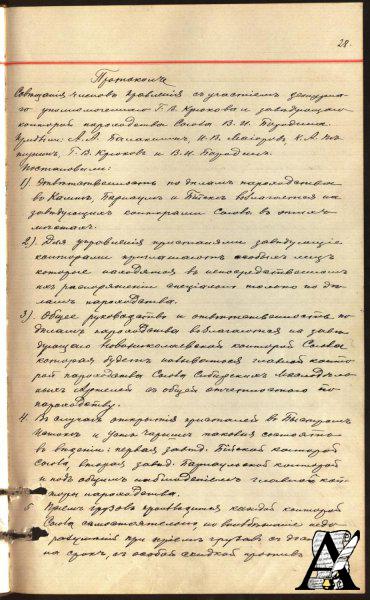 28.
Протоколъ
Совѣщанія членовъ Правленія съ участіемъ
го уполномоченнаго Г. В. Крюкова и завѣдующаго
конторой пароходства Союза В. Н. Породина.
А. А. Балакшинъ, Н. В. Маіоровъ, К. А.
Г. В. Крюковъ и В. Н. Породинъ.
Постановили:
1). Отвѣтственность по дѣламъ пароходства
въ Камнѣ, Барнаулѣ и Бійскѣ возлагается на
завѣдующихъ конторами Союза въ этихъ
мѣстахъ.
2). Для управленія пристанями завѣдующіе
конторами приглашаютъ особыхъ лицъ
которые находятся въ непосредственномъ
ихъ распоряженіи спеціально только по дѣ
ламъ пароходства.
3). Общее руководство и отвѣтственность по
дѣламъ пароходства возлагаются на завѣ
дующаго Новониколаевской конторой Союза
которая будетъ называться главной конто
рой пароходства Союза Сибирскихъ Маслодѣль
ныхъ Артелей съ общей отчетностью по
пароходству.
4. Въ случаѣ открытія пристаней въ Быстромъ
Истокѣ и Усть Чарышѣ таковыя состоятъ
въ вѣдѣніи: первая завѣд. Бійской конторой
Союза, вторая завѣд. Барнаульской конторой
и подъ общимъ наблюденіемъ главной кон
торы пароходства.
5 Пріемъ грузовъ производится каждой конторой
Союза самостоятельно, но во избѣжаніе недо
разумѣній при пріемѣ грузовъ съ
на срокъ, съ особой скидкой противъ
А